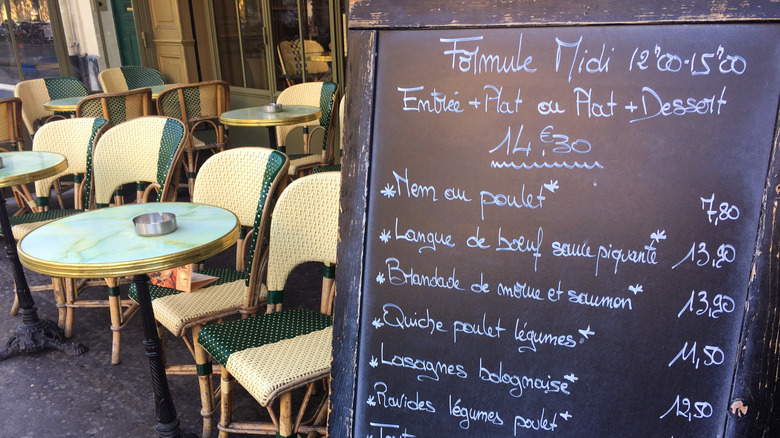 Formule Midi 12H00-15H00
Entrée + Plat ou Plat + Dessert
14,€30
*Nem au poulet* 7,80
*Langue de bœuf sauce piquante* 13,90
*Brandade de morue et saumon* 13,90
*Quiche poulet légumes* 11,50
*Lasagnes bolognaise* 12,50
*Ravioles légumes poulet*